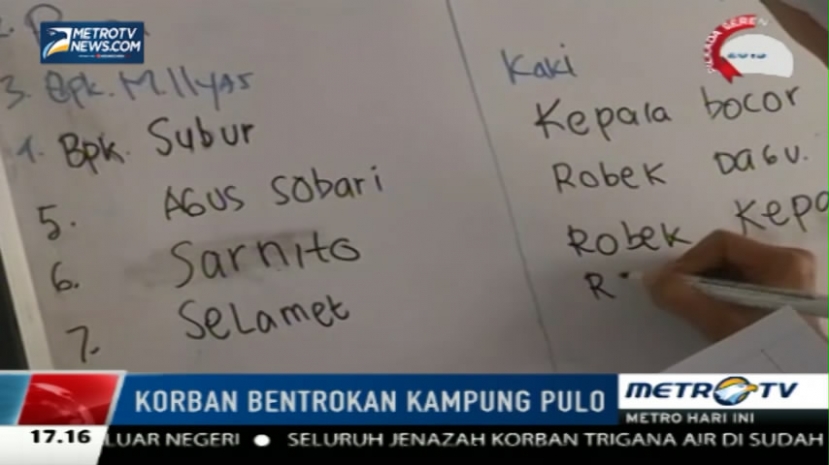 METROTV
NEWS.COM
PILKADA SEREN
2015
2.
3. Bpk. M. Ilyas
Kaki
4. Bpk. Subur
Kepala bocor
5. AGUS SObari
Robek DAGU.
6. Sarnito
Robek Kepa
7. SeLamet
R
KORBAN BENTROKAN KAMPUNG PULO
METRO TV
METRO HARI INI
17.16
LUAR NEGERI ● SELURUH JENAZAH KORBAN TRIGANA AIR DI SUDAH